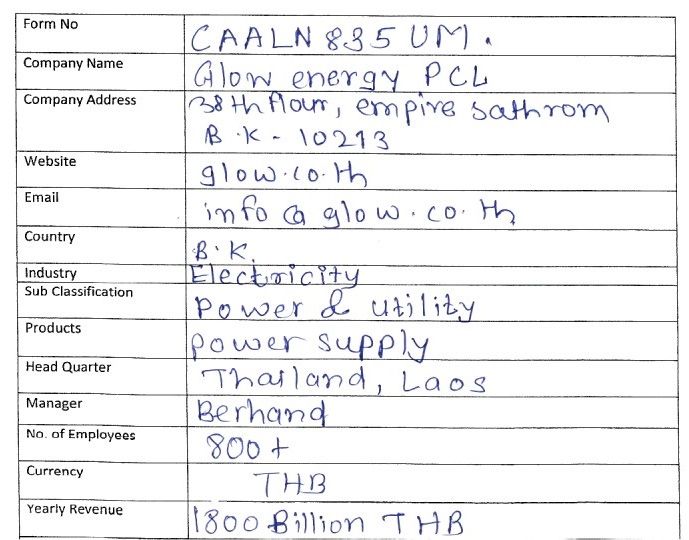 Form No CAALN 835 UM.
Company Name Glow energy PCL
Company Address 38th flour, empire sathrom
B.K - 10213
Website glow.co.th
Email info @ glow.co.th
Country B.K.
Industry Electricity
Sub Classification Power & utility
Products power supply
Head Quarter Thailand, Laos
Manager Berhand
No. of Employees 800+
Currency THB
Yearly Revenue 1800 Billion THB